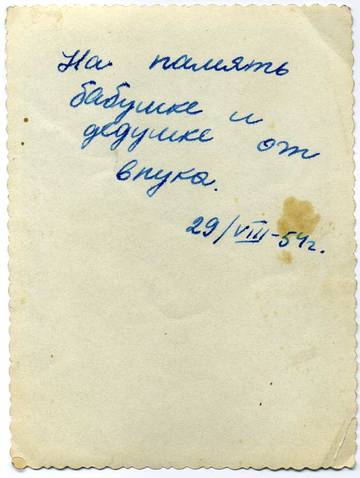 На память
бабушке и
дедушке от
внука.
29/VIII-54г.